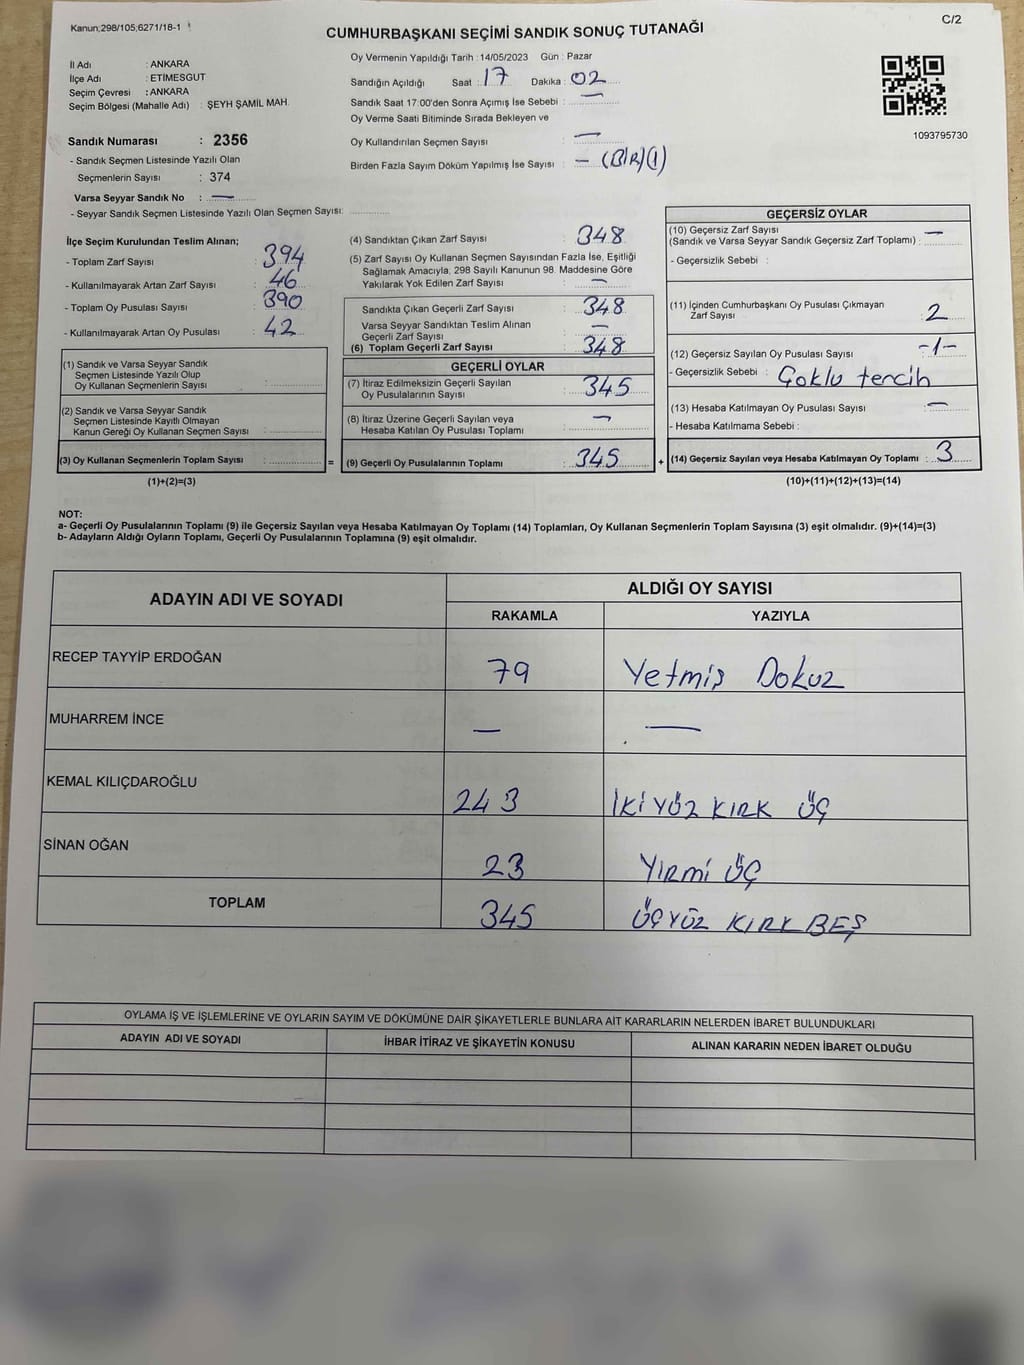 Kanun;298/105;6271/18-1
C/2
CUMHURBAŞKANI SEÇİMİ SANDIK SONUÇ TUTANAĞI
İl Adı : ANKARA
İlçe Adı : ETİMESGUT
Seçim Çevresi : ANKARA
Seçim Bölgesi (Mahalle Adı) : ŞEYH ŞAMİL MAH.
Sandık Numarası : 2356
- Sandık Seçmen Listesinde Yazılı Olan
Seçmenlerin Sayısı : 374
Varsa Seyyar Sandık No : —
- Seyyar Sandık Seçmen Listesinde Yazılı Olan Seçmen Sayısı: ..............
Oy Vermenin Yapıldığı Tarih : 14/05/2023 Gün : Pazar
Sandığın Açıldığı Saat : 17 Dakika : 02
Sandık Saat 17:00'den Sonra Açımış İse Sebebi : —
Oy Verme Saati Bitiminde Sırada Bekleyen ve
Oy Kullandırılan Seçmen Sayısı : —
Birden Fazla Sayım Döküm Yapılmış İse Sayısı : — (BİR)(1)
1093795730
İlçe Seçim Kurulundan Teslim Alınan;
- Toplam Zarf Sayısı : 394
- Kullanılmayarak Artan Zarf Sayısı : 46
- Toplam Oy Pusulası Sayısı : 390
- Kullanılmayarak Artan Oy Pusulası : 42
(1) Sandık ve Varsa Seyyar Sandık
Seçmen Listesinde Yazılı Olup
Oy Kullanan Seçmenlerin Sayısı : ..............
(2) Sandık ve Varsa Seyyar Sandık
Seçmen Listesinde Kayıtlı Olmayan
Kanun Gereği Oy Kullanan Seçmen Sayısı : ..............
(3) Oy Kullanan Seçmenlerin Toplam Sayısı : .............. =
(1)+(2)=(3)
(4) Sandıktan Çıkan Zarf Sayısı : 348
(5) Zarf Sayısı Oy Kullanan Seçmen Sayısından Fazla İse, Eşitliği
Sağlamak Amacıyla, 298 Sayılı Kanunun 98. Maddesine Göre
Yakılarak Yok Edilen Zarf Sayısı : —
Sandıkta Çıkan Geçerli Zarf Sayısı : 348
Varsa Seyyar Sandıktan Teslim Alınan
Geçerli Zarf Sayısı : —
(6) Toplam Geçerli Zarf Sayısı : 348
GEÇERLİ OYLAR
(7) İtiraz Edilmeksizin Geçerli Sayılan
Oy Pusulalarının Sayısı : 345
(8) İtiraz Üzerine Geçerli Sayılan veya
Hesaba Katılan Oy Pusulası Toplamı : —
(9) Geçerli Oy Pusulalarının Toplamı : 345 +
GEÇERSİZ OYLAR
(10) Geçersiz Zarf Sayısı
(Sandık ve Varsa Seyyar Sandık Geçersiz Zarf Toplamı) : —
- Geçersizlik Sebebi :
(11) İçinden Cumhurbaşkanı Oy Pusulası Çıkmayan
Zarf Sayısı : 2
(12) Geçersiz Sayılan Oy Pusulası Sayısı : -1-
- Geçersizlik Sebebi : Çoklu tercih
(13) Hesaba Katılmayan Oy Pusulası Sayısı : —
- Hesaba Katılmama Sebebi :
(14) Geçersiz Sayılan veya Hesaba Katılmayan Oy Toplamı : 3
(10)+(11)+(12)+(13)=(14)
NOT:
a- Geçerli Oy Pusulalarının Toplamı (9) ile Geçersiz Sayılan veya Hesaba Katılmayan Oy Toplamı (14) Toplamları, Oy Kullanan Seçmenlerin Toplam Sayısına (3) eşit olmalıdır. (9)+(14)=(3)
b- Adayların Aldığı Oyların Toplamı, Geçerli Oy Pusulalarının Toplamına (9) eşit olmalıdır.
ADAYIN ADI VE SOYADI
ALDIĞI OY SAYISI
RAKAMLA YAZIYLA
RECEP TAYYİP ERDOĞAN 79 Yetmiş Dokuz
MUHARREM İNCE — —
KEMAL KILIÇDAROĞLU 243 İKİ YÜZ KIRK ÜÇ
SİNAN OĞAN 23 YİRMİ ÜÇ
TOPLAM 345 ÜÇYÜZ KIRK BEŞ
OYLAMA İŞ VE İŞLEMLERİNE VE OYLARIN SAYIM VE DÖKÜMÜNE DAİR ŞİKAYETLERLE BUNLARA AİT KARARLARIN NELERDEN İBARET BULUNDUKLARI
ADAYIN ADI VE SOYADI İHBAR İTİRAZ VE ŞİKAYETİN KONUSU ALINAN KARARIN NEDEN İBARET OLDUĞU